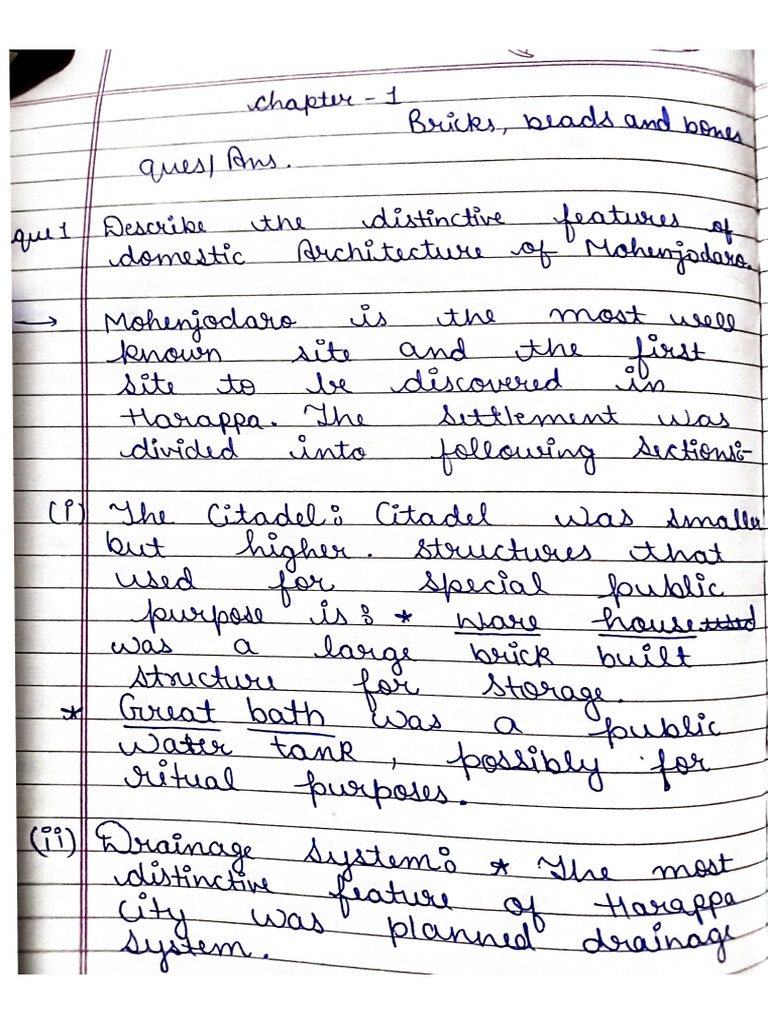 Chapter - 1
Bricks, beads and bones
ques/Ans.
que 1 Describe the distinctive features of
domestic Architecture of Mohenjodaro.
→ Mohenjodaro is the most well
known site and the first
site to be discovered in
Harappa. The settlement was
divided into following sections:-
(i) The Citadel: Citadel was smaller
but higher. structures that
used for special public
purpose is: * ware house
was a large brick built
structure for storage.
* Great bath was a public
water tank, possibly for
ritual purposes.
(ii) Drainage System: * The most
distinctive feature of Harappa
city was planned drainage
system.